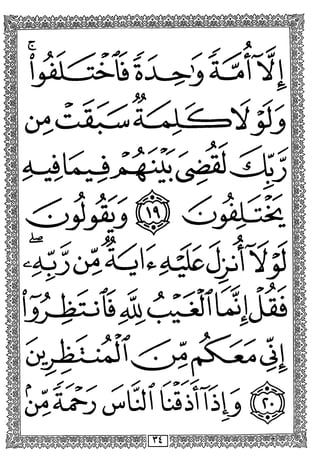 إِلَّآ أُمَّةً وَٰحِدَةً فَٱخْتَلَفُوا۟ ۚ
وَلَوْلَا كَلِمَةٌ سَبَقَتْ مِن
رَّبِّكَ لَقُضِىَ بَيْنَهُمْ فِيمَا فِيهِ
يَخْتَلِفُونَ ١٩ وَيَقُولُونَ
لَوْلَآ أُنزِلَ عَلَيْهِ ءَايَةٌ مِّن رَّبِّهِۦ ۖ
فَقُلْ إِنَّمَا ٱلْغَيْبُ لِلَّهِ فَٱنتَظِرُوٓا۟
إِنِّى مَعَكُم مِّنَ ٱلْمُنتَظِرِينَ
٢٠ وَإِذَآ أَذَقْنَا ٱلنَّاسَ رَحْمَةً مِّنۢ
٣٤